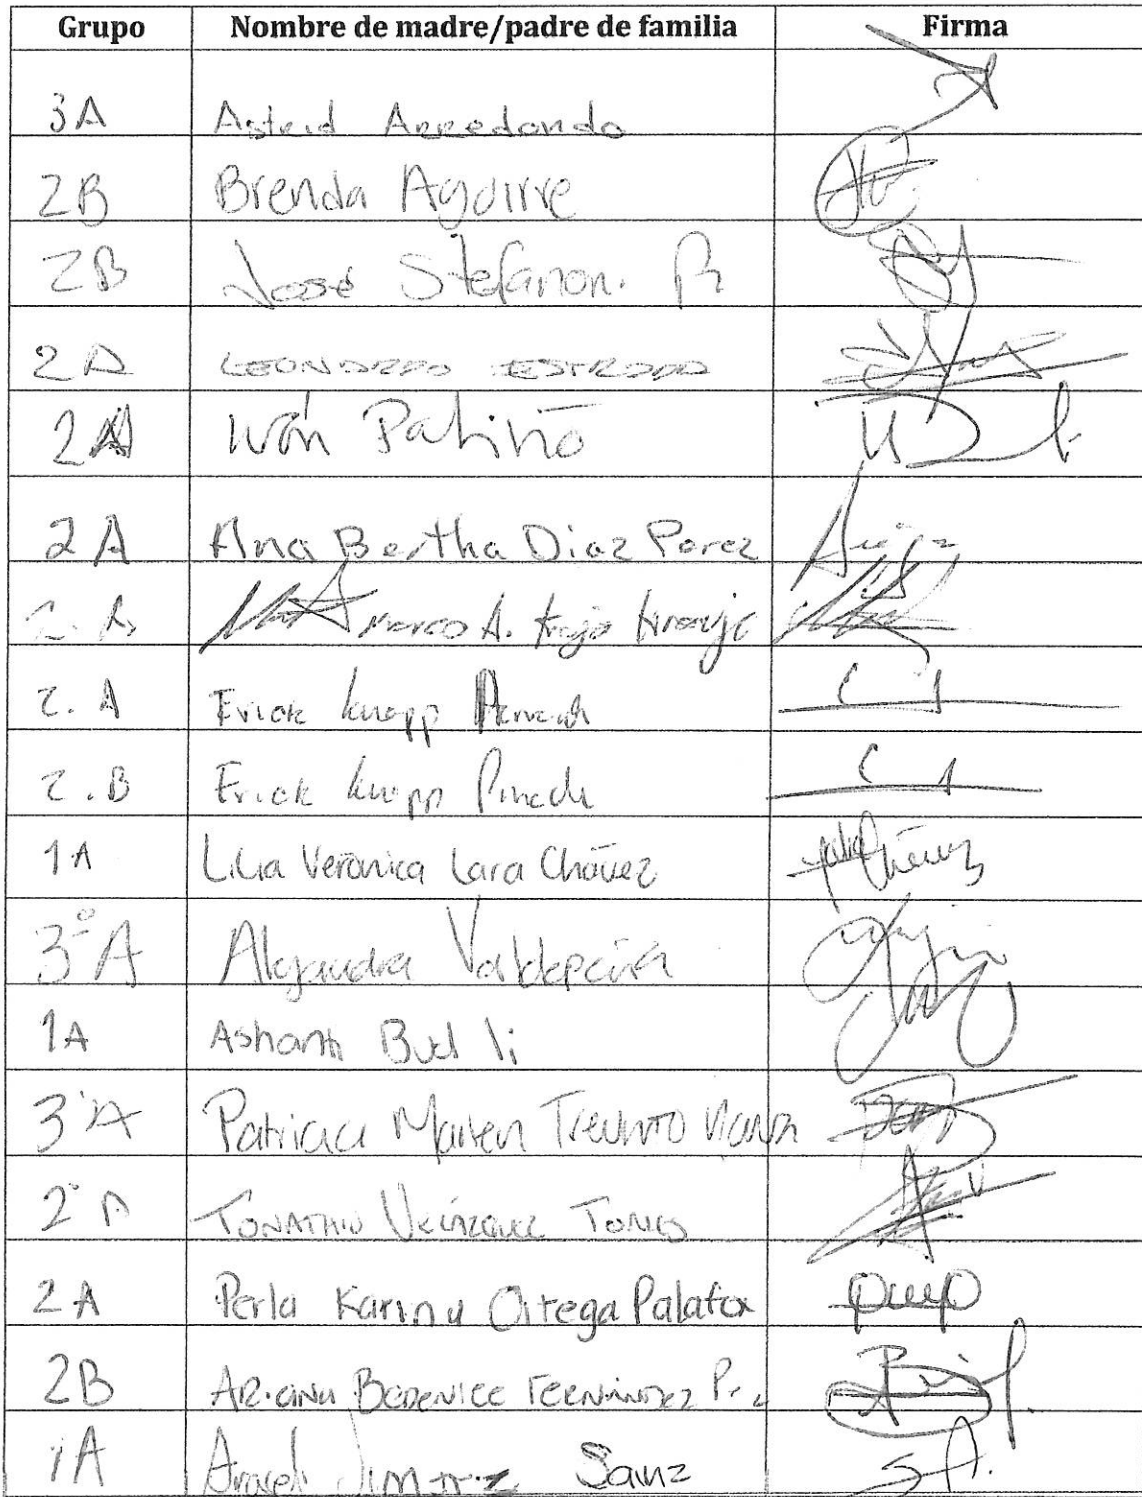 Grupo Nombre de madre/padre de familia Firma
3A Astrid Arredondo
2B Brenda Aguirre
2B José Stefanoni. R
2A LEONARDO ESTRADA
2A Iván Patiño
2A Ana Bertha Diaz Perez
2. A Marco A. Araujo
2. A Erick Knapp
2. B Erick Knapp Pineda
1A Lilia Verónica Lara Chávez
3°A Alejandra Valdepeña
1A Ashanti
3°A Patricia Maricen
2°A TONATHIU VELÁZQUEZ TORRES
2A Perla Karina Ortega Palafox
2B BERENICE FERNÁNDEZ
1A Araceli Jiménez Sainz